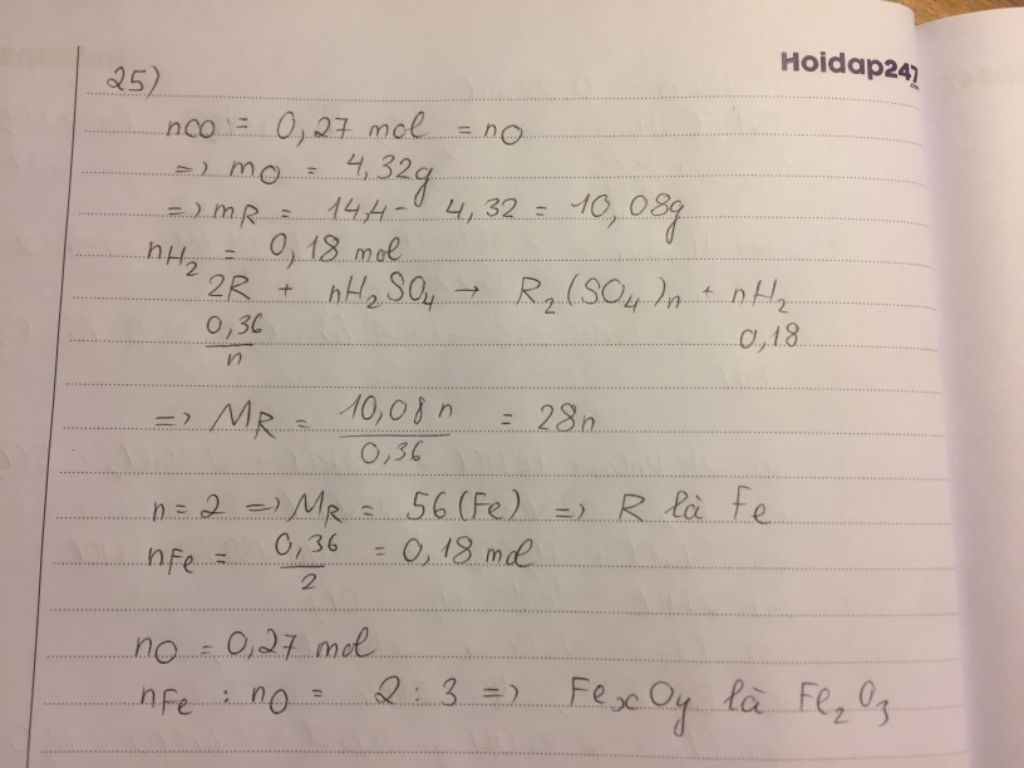 Hoidap247
25)
nCO = 0,27 mol = nO
=> mO = 4,32g
=> mR = 14,4 - 4,32 = 10,08g
nH2 = 0,18 mol
2R + nH2SO4 → R2(SO4)n + nH2
0,36/n 0,18
=> MR = 10,08n/0,36 = 28n
n = 2 => MR = 56 (Fe) => R là Fe
nFe = 0,36/2 = 0,18 mol
nO = 0,27 mol
nFe : nO = 2 : 3 => FexOy là Fe2O3